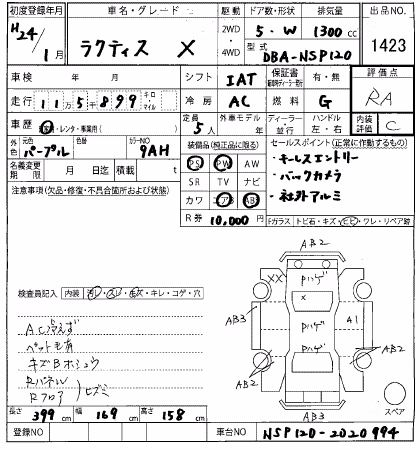 初度登録年月 車名・グレード 駆動 ドア数・形状 排気量 出品NO.
H24/1月 ラクティス X 2WD 4WD 5・W 1300cc 1423
型式 DBA-NSP120
車検 年 月 シフト IAT 保証書 有・無 評価点
走行 11万5千899 キロ マイル 冷房 AC 燃料 G RA
車歴 自家用・レンタ・事業用( ) 定員 5人 外車モデル ディーラー 並行 ハンドル 左・右 内装評価 C
外色 元色 パープル 色替 カラーNO 9AH 装備品(純正品に限る) セールスポイント(正常に作動するもの)
名義変更期限 月 日迄 積載 t PS PW AW ・キーレスエントリー
注意事項(欠品・修復・不具合箇所および状態) SR TV ナビ ・バックカメラ
カワ エアB AB ・社外アルミ
R券 10,000円 Fガラス トビ石・キズ・ヒビ・ワレ・リペア跡
AB2
検査員記入 内装 汚レ・スレ・キズ・キレ・コゲ・穴
XX Pハゲ
X
AC冷えず AB3 Pハゲ A1
ペット毛有
キズBホシュウ Pハゲ
Rパネル AB2 AB2
Rフロア ヒズミ スペア
AB3
長さ 399cm 幅 169cm 高さ 158cm
登録NO 車台NO NSP120-2020994